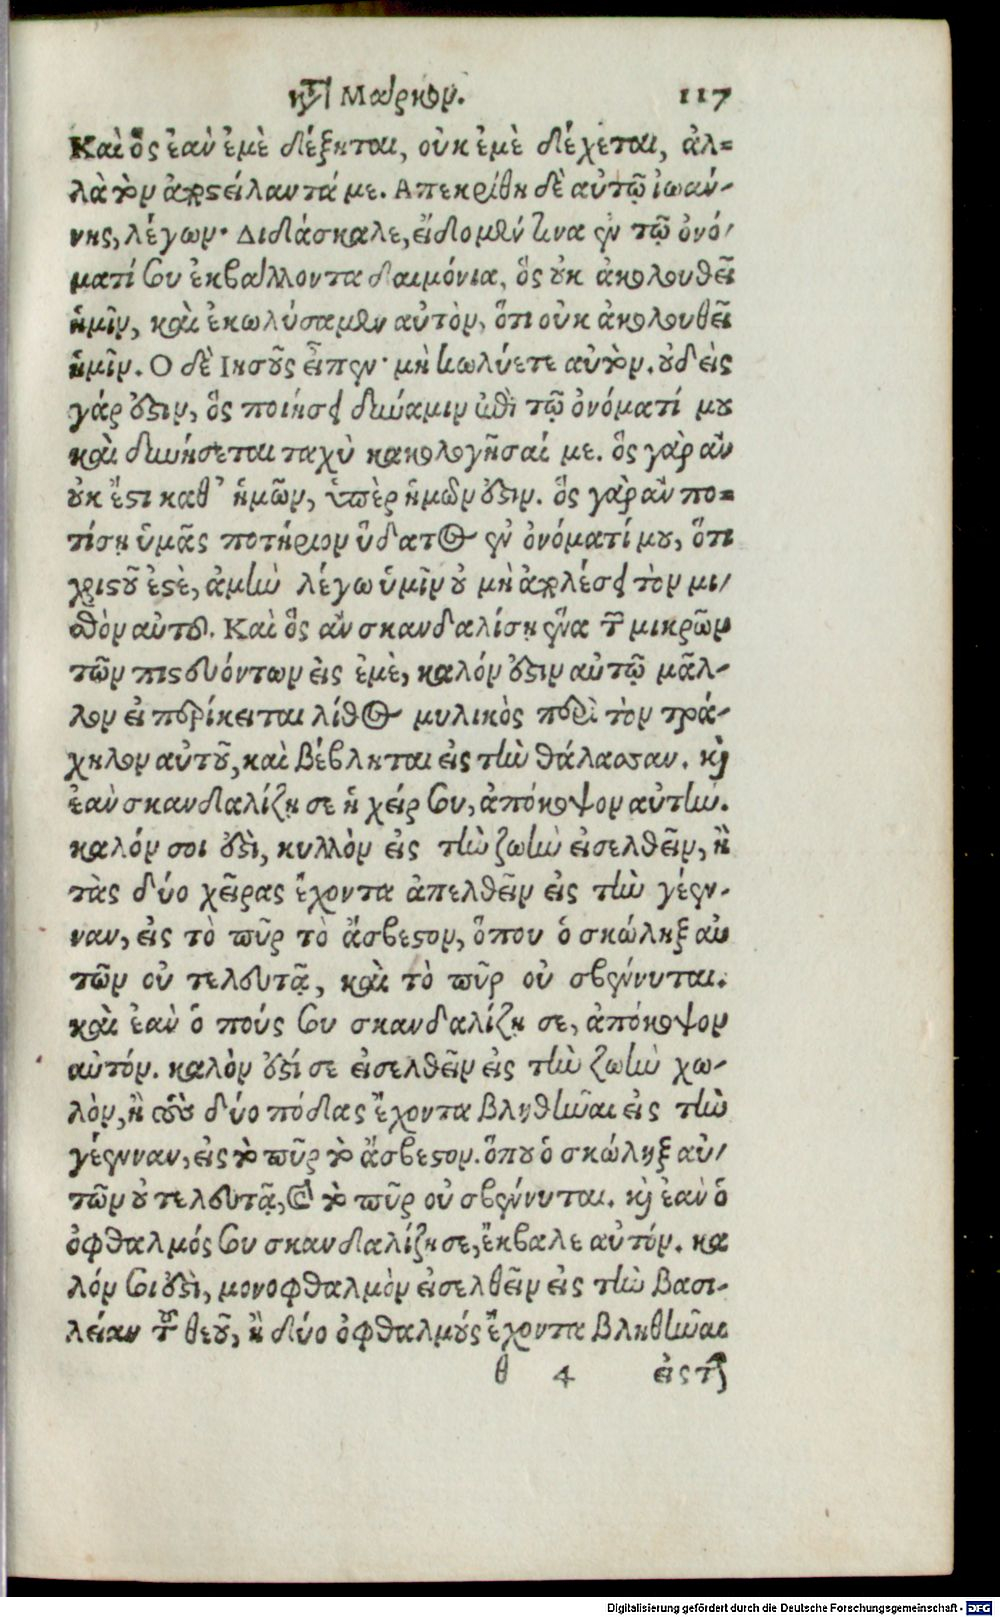 κτ̀ Μάρκον. 117
Καὶ ὃς ἐαν ἐμὲ δέξηται, οὐκ ἐμὲ δέχεται, ἀλ=
λὰ τὸν ἀποςείλαντά με. Απεκρίθη δὲ αὐτῷ ἰωάν-
νης, λέγων· Διδάσκαλε, εἴδομέν τινα ἐν τῷ ὀνό/
ματί σου ἐκβάλλοντα δαιμόνια, ὃς οὐκ ἀκολουθεῖ
ἡμῖν, καὶ ἐκωλύσαμεν αὐτὸν, ὅτι οὐκ ἀκολουθεῖ
ἡμῖν. Ο δὲ Ιησοῦς εἶπεν· μὴ κωλύετε αὐτὸν. οὐδεὶς
γάρ ἐςιν, ὃς ποιήσει δύναμιν ἐπὶ τῷ ὀνόματί μου
καὶ δυνήσεται ταχὺ κακολογῆσαί με. ὃς γὰρ ἂν
οὐκ ἔςι καθ’ ἡμῶν, ὑπὲρ ἡμῶν ἐςιν. ὃς γὰρ ἂν πο=
τίσῃ ὑμᾶς ποτήριον ὕδατος ἐν ὀνόματί μου, ὅτι
χριςοῦ ἐςὲ, ἀμὴν λέγω ὑμῖν οὐ μὴ ἀπολέσει τὸν μι/
σθὸν αὐτοῦ. Καὶ ὃς ἂν σκανδαλίσῃ ἕνα τῶν μικρῶν
τῶν πιςευόντων εἰς ἐμὲ, καλόν ἐςιν αὐτῷ μᾶλ-
λον εἰ περίκειται λίθος μυλικὸς περὶ τὸν τρά-
χηλον αὐτοῦ, καὶ βέβληται εἰς τὴν θάλασσαν. καὶ
ἐαν σκανδαλίζῃ σε ἡ χείρ σου, ἀπόκοψον αὐτὴν.
καλόν σοι ἐςὶ, κυλλὸν εἰς τὴν ζωὴν εἰσελθεῖν, ἢ
τὰς δύο χεῖρας ἔχοντα ἀπελθεῖν εἰς τὴν γέεν-
ναν, εἰς τὸ πῦρ τὸ ἄσβεςον, ὅπου ὁ σκώληξ αὐ
τῶν οὐ τελευτᾷ, καὶ τὸ πῦρ οὐ σβέννυται.
καὶ ἐαν ὁ πούς σου σκανδαλίζῃ σε, ἀπόκοψον
αὐτόν. καλὸν ἐςί σε εἰσελθεῖν εἰς τὴν ζωὴν χω-
λὸν, ἢ τοὺς δύο πόδας ἔχοντα βληθῆναι εἰς τὴν
γέενναν, εἰς τὸ πῦρ τὸ ἄσβεςον. ὅπου ὁ σκώληξ αὐ/
τῶν οὐ τελευτᾷ, καὶ τὸ πῦρ οὐ σβέννυται. καὶ ἐαν ὁ
ὀφθαλμός σου σκανδαλίζῃ σε, ἔκβαλε αὐτόν. κα
λόν σοι ἐςὶ, μονοφθαλμὸν εἰσελθεῖν εἰς τὴν βασι-
λείαν τοῦ θεοῦ, ἢ δύο ὀφθαλμούς ἔχοντα βληθῆναι
θ 4 εἰς τὴν
Digitalisierung gefördert durch die Deutsche Forschungsgemeinschaft - DFG